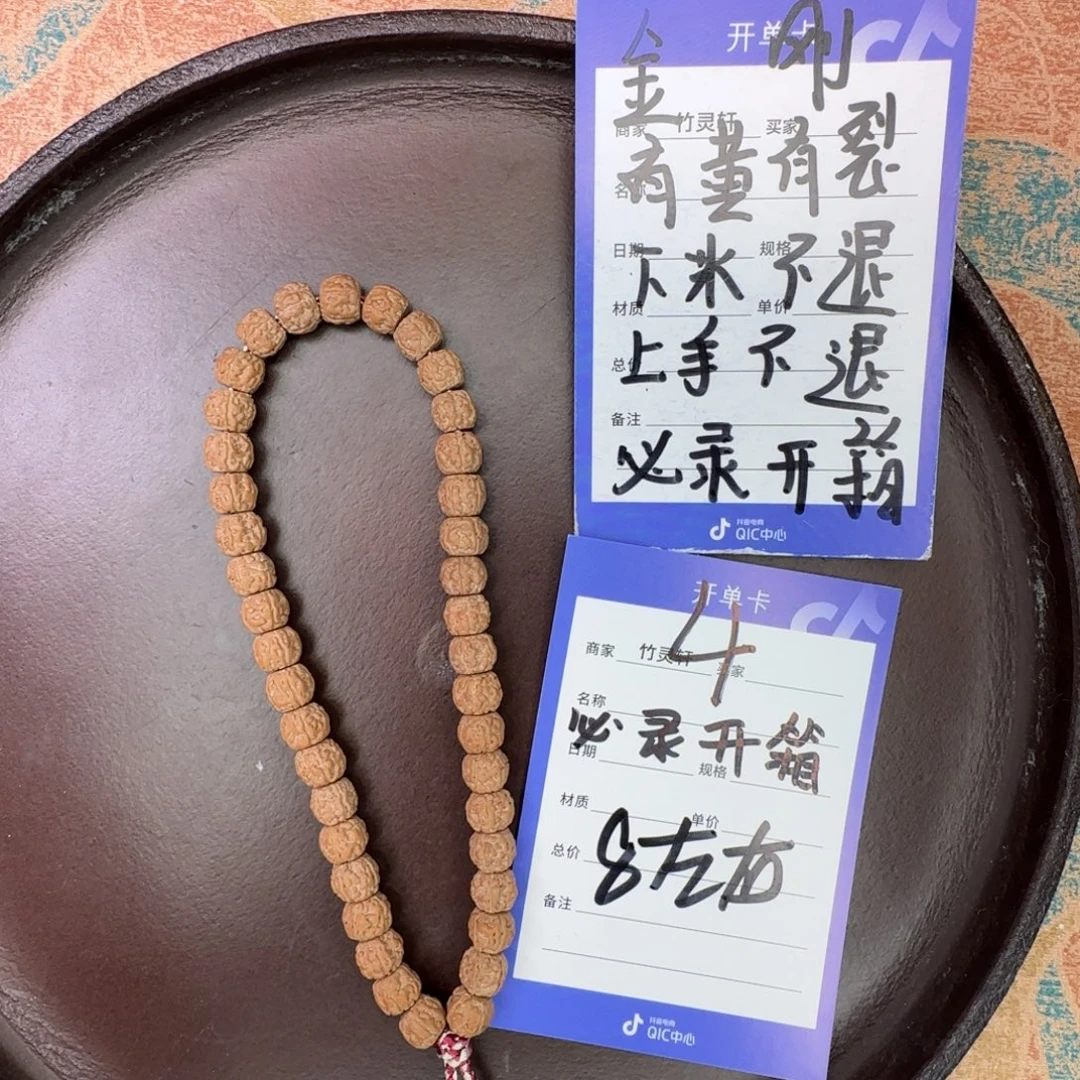 开单卡
金刚
商家 竹灵轩 买家
名称
有黄有裂
日期 规格
下水不退
材质 单价
上手不退
总价
备注
必录开箱
抖音电商
QIC中心
开单卡
4
商家 竹灵轩 买家
名称
必录开箱
日期 规格
材质 单价
总价
8左右
备注
抖音电商
QIC中心